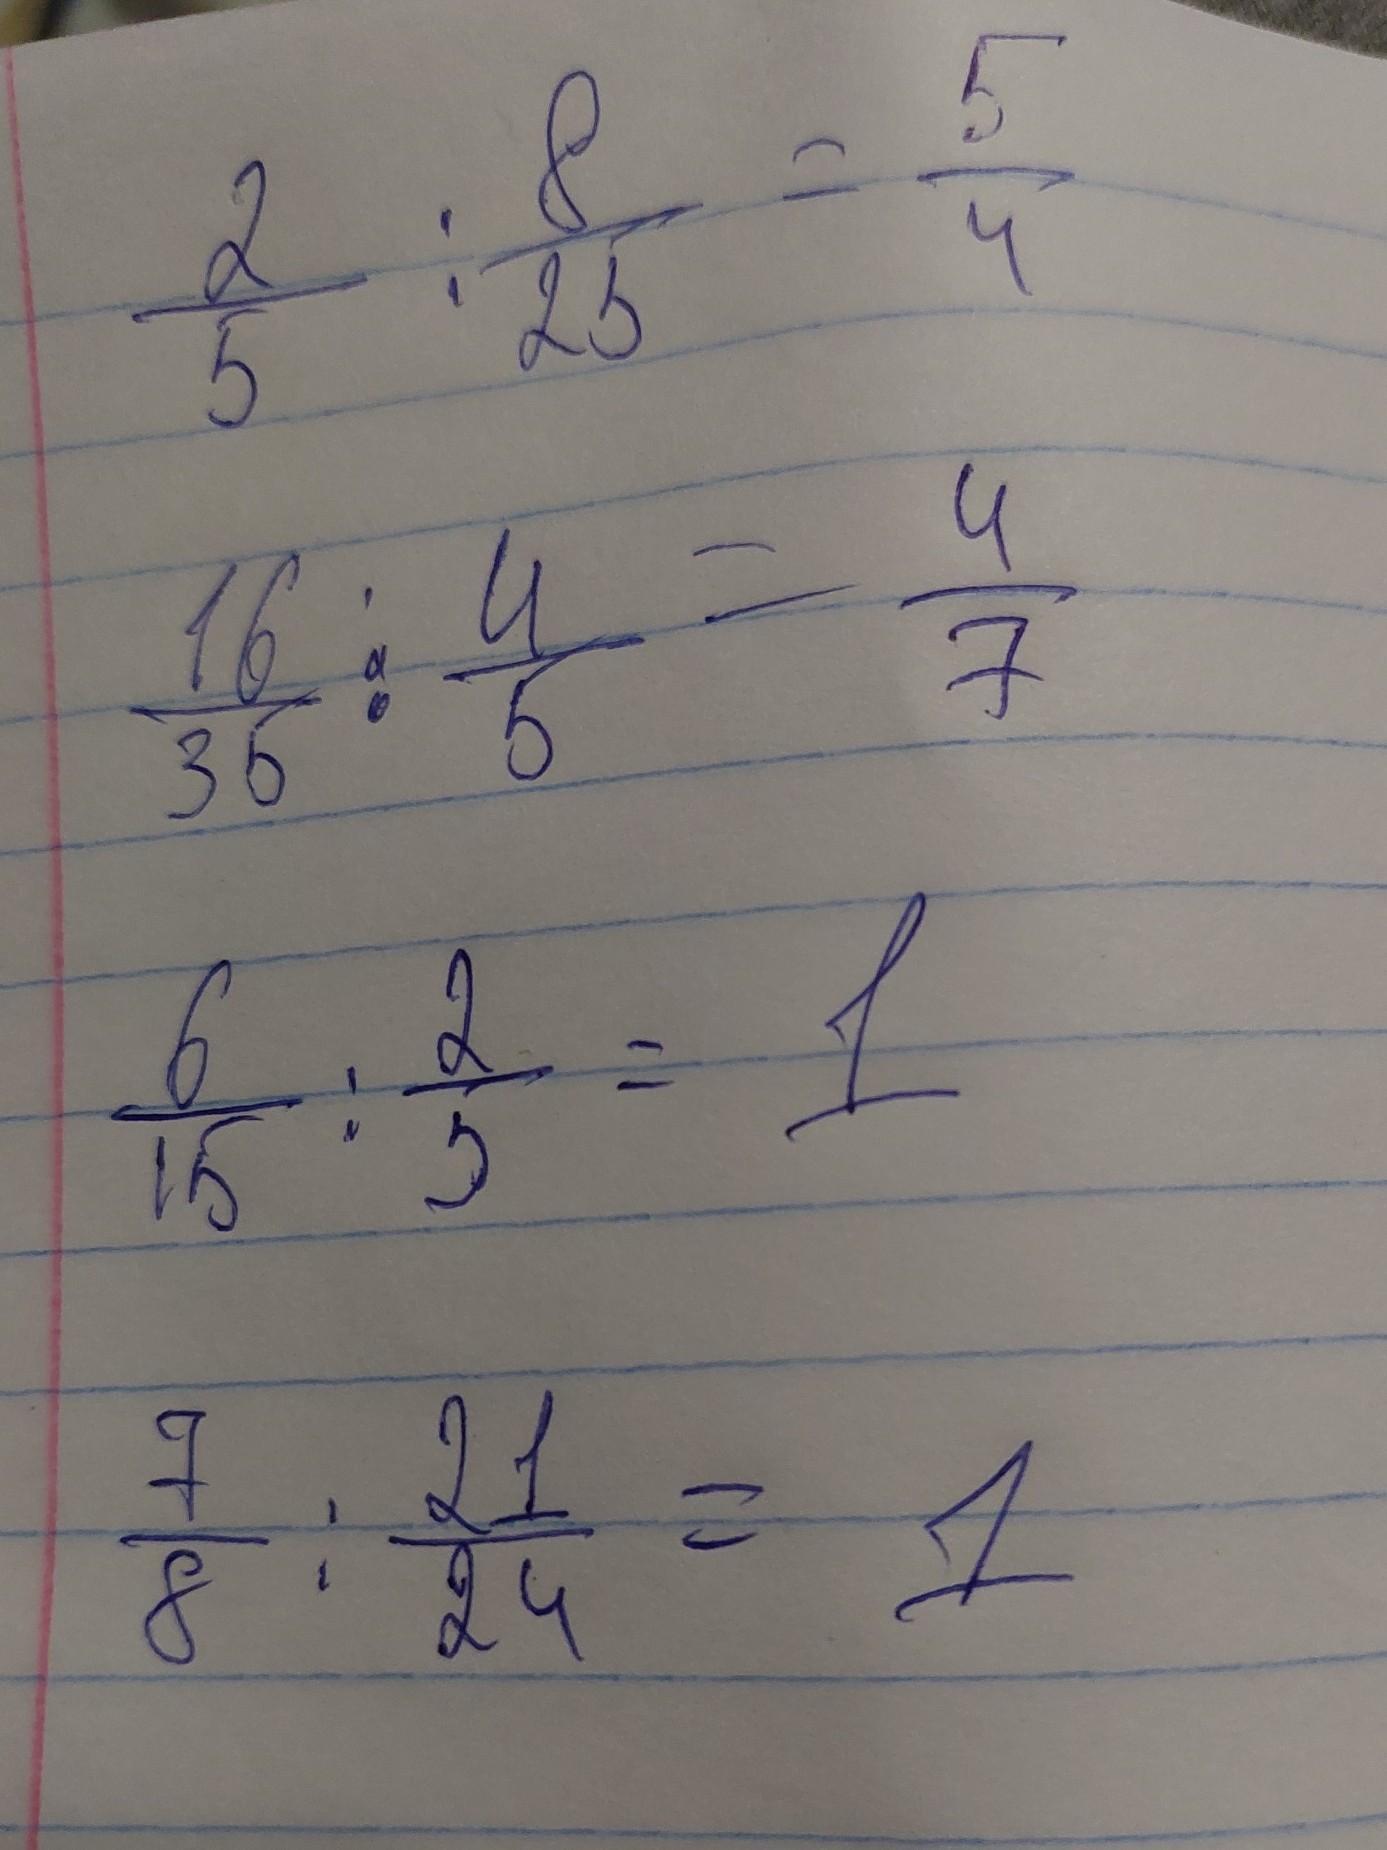 2/5 : 8/25 = 5/4
16/35 : 4/5 = 4/7
6/15 : 2/5 = 1
7/8 : 21/24 = 1